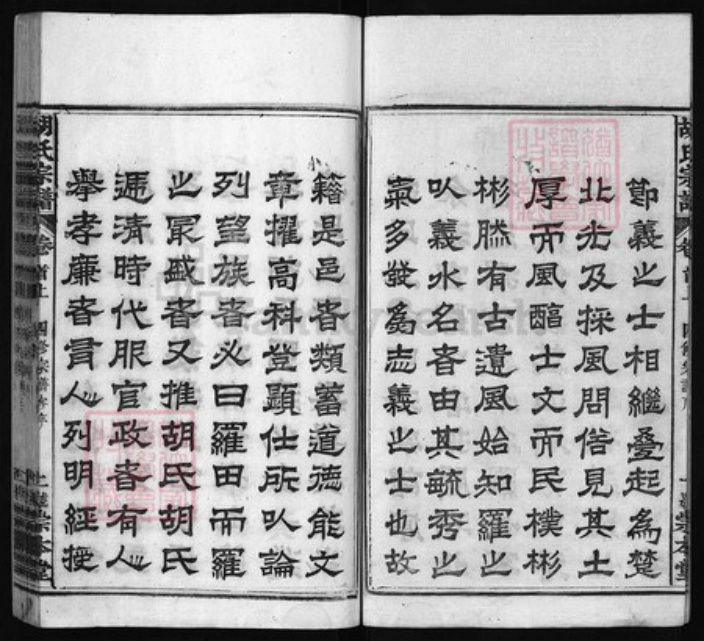 節義之士相繼疊起為楚
北尤及採風問俗見其土
厚而風醇士文而民樸彬
彬然有古遺風始知羅之
以義水名者由其毓秀之
氣多發為志義之士也故
籍是邑者類蓄道德能文
章擢高科登顯仕所以論
列望族者必曰羅田而羅
之最盛者又推胡氏胡氏
遞清時代服官政者有人
舉孝廉者有人列明經授
胡氏宗譜
卷首上
四修宗譜序
敦本堂